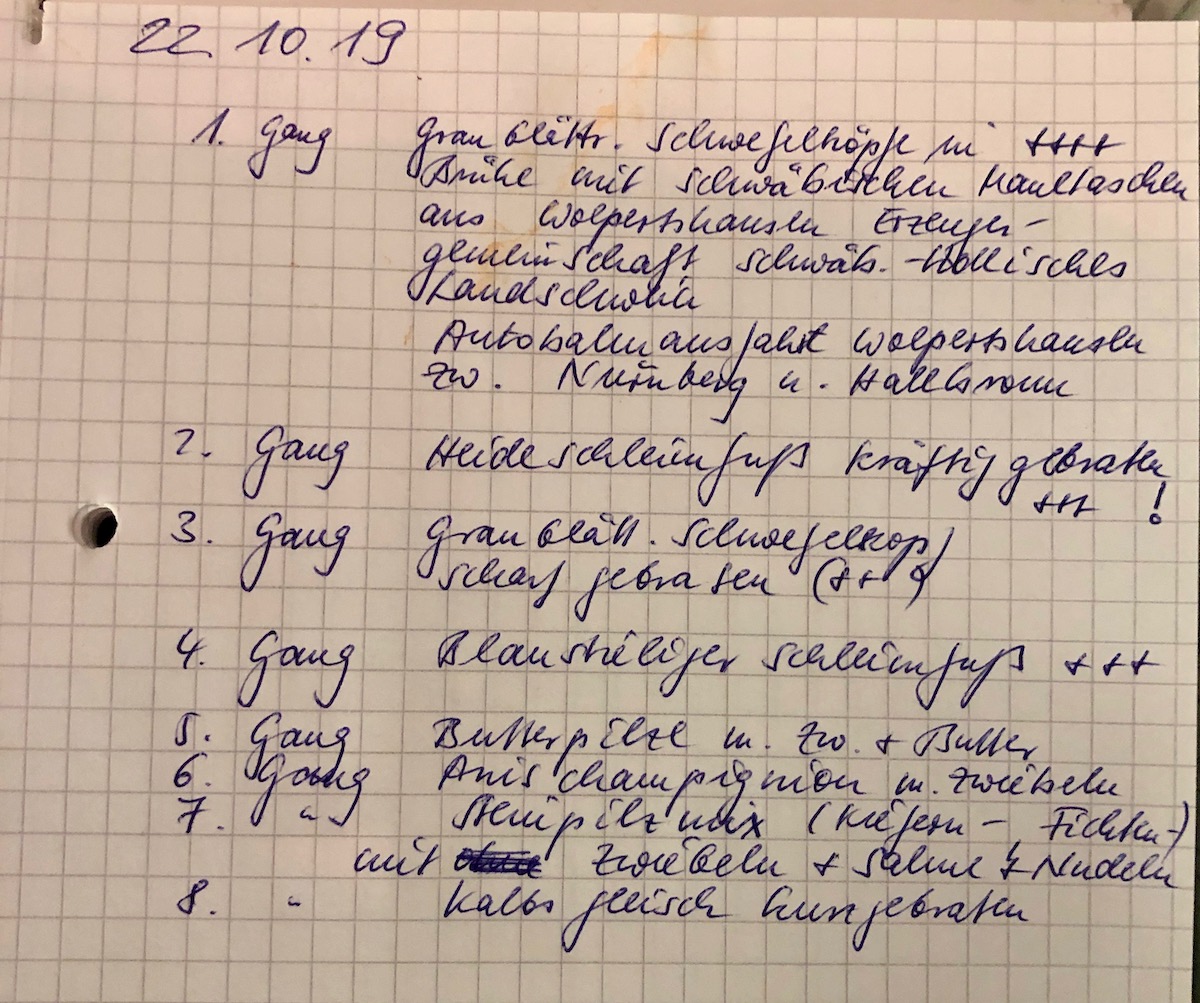 22. 10. 19
1. Gang Graublättr. Schwefelköpfe in ++++
Brühe mit schwäbischen Maultaschen
aus Wolpertshausen Erzeuger-
gemeinschaft schwäb.-Hällisches
Landschwein
Autobahnausfahrt Wolpertshausen
zw. Nürnberg u. Heilbronn
2. Gang Heideschleimfuß kräftig gebraten
+++ !
3. Gang Graublätt. Schwefelkopf
scharf gebraten (++
4. Gang Blaustieliger Schleimfuß +++
5. Gang Butterpilze m. Zw. + Butter
6. Gang Anischampignion m. Zwiebeln
7. " Steinpilzmix (Kiefern- Fichten-)
mit Zwiebeln + Sahne + Nudeln
8. " Kalbsfleisch kurzgebraten